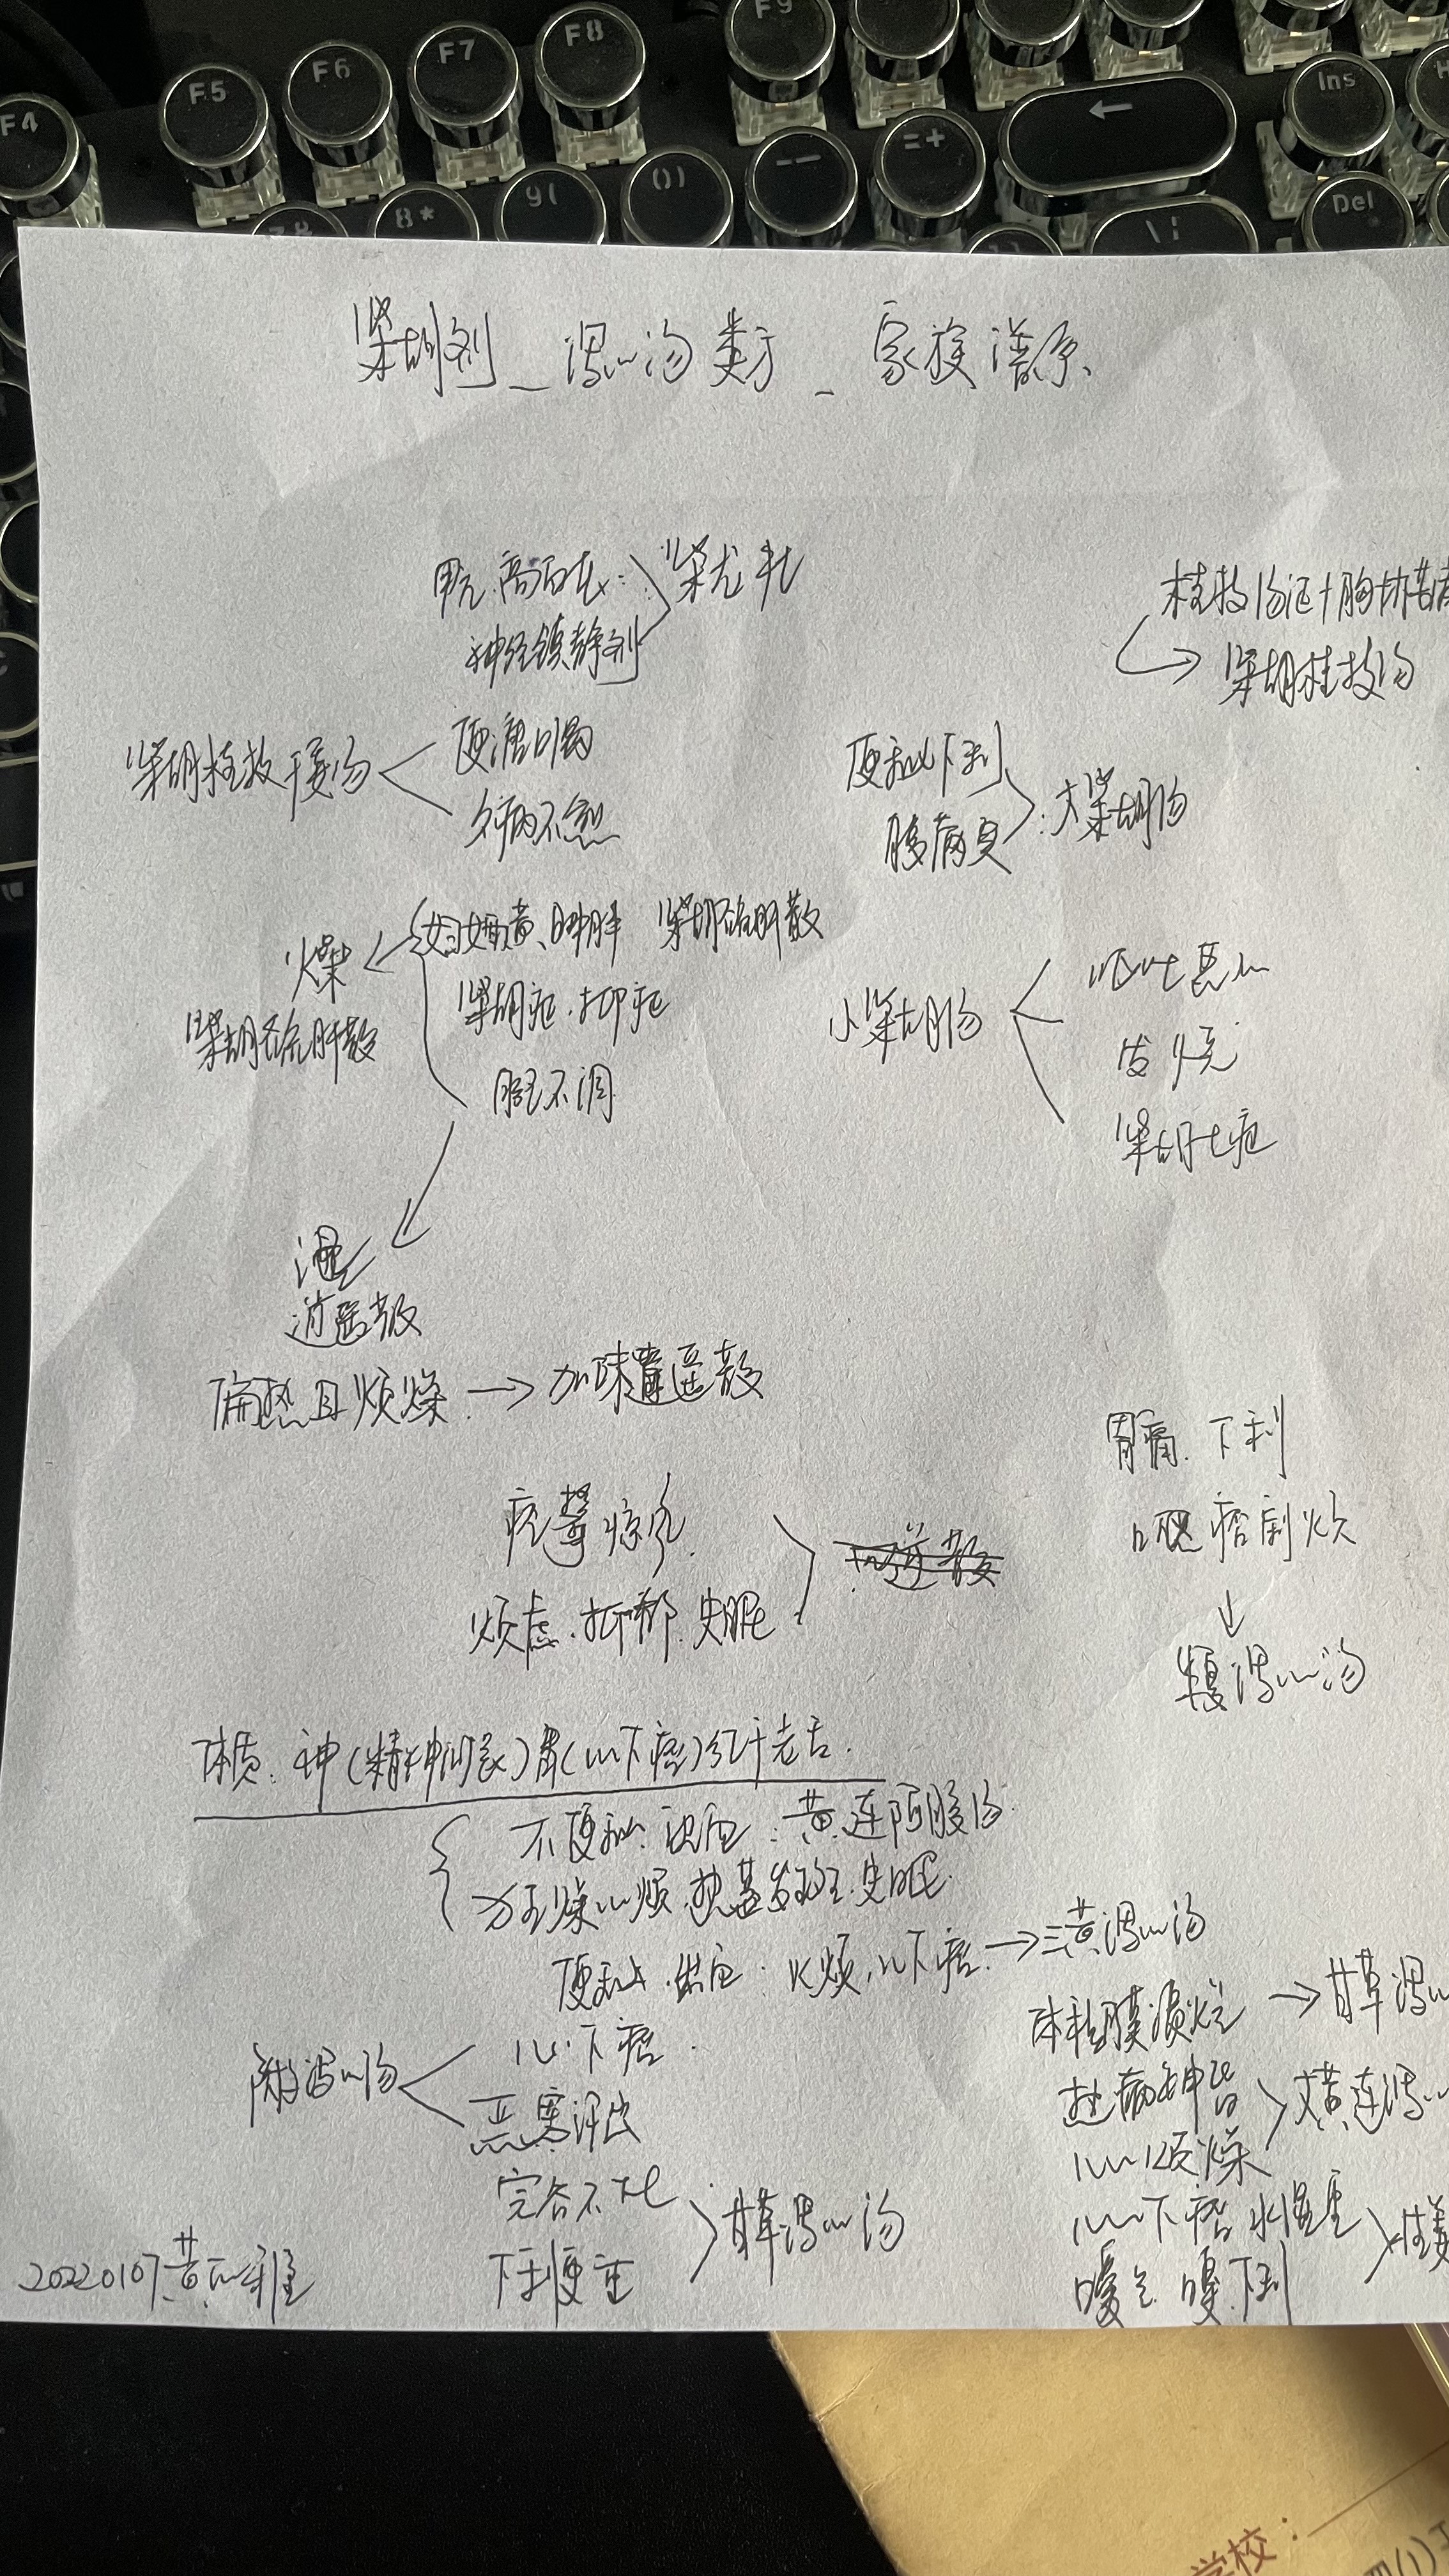 F4 F5 F6 F7 F8 F9
Ins
8* 9( 0) -- =+ ←
Del
柴胡剂_泻心汤类方_家族谱系
甲亢.高血压:
神经镇静剂
柴龙牡
桂枝汤证+胸胁苦满
柴胡桂枝汤
柴胡桂枝干姜汤
便溏口渴
久病不愈
便秘下利
腹痛
:大柴胡汤
燥
柴胡疏肝散
黄、肿胖 柴胡疏肝散
柴胡证.抑郁
不调
小柴胡汤
呕吐恶心
发烧
柴胡七证
湿
逍遥散
偏热且烦燥→加味逍遥散
惊
烦虑.抑郁.失眠
胃痛.下利
口 痞 炎
↓
半夏泻心汤
体质:神(精神)胃(心下痞)红干老舌.
不便秘.出血:黄连阿胶汤.
燥心烦.热 失眠.
便秘.出血:心烦,心下痞.→三黄泻心汤
体粘膜溃烂→甘草泻心
附泻心汤
心下痞.
恶寒汗出
热病神昏
心烦燥
黄连泻心
完谷不化
下利便
甘草泻心汤
心下痞 水
嗳气 下利
生姜
20220107黄
学校: